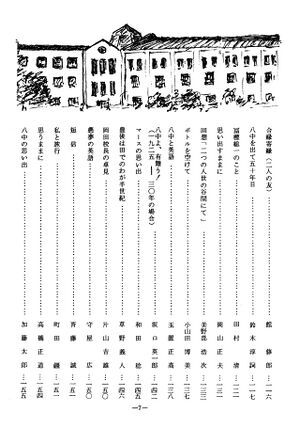 合縁奇縁（二人の友）……館 脩郎…一一六
八中を出て五十年目……鈴木淳詞…一一七
「富標組」のこと……田村 清…一二一
思い出すままに……岡山正夫…一二三
回想「二つの人世の谷間にて」……美野島浩次…一二七
ボトルを空けて……小山田博美…一三七
八中と英語……玉置正亮…一三八
八中よ、有難う！
（一九二五――三〇年の場合）……坂口英一郎…一四二
マースの思い出……和田 稔…一四五
最後は田でのわが半世紀……草野義人…一四六
岡田校長の卓見……片山吉雄…一五〇
悪夢の英語……守屋 広…一五一
短信……斉藤 誠…一五一
私と旅行……町田 彊…一五一
思うままに……高橋正道…一五四
八中の思い出……加藤太郎…一五五
―7―